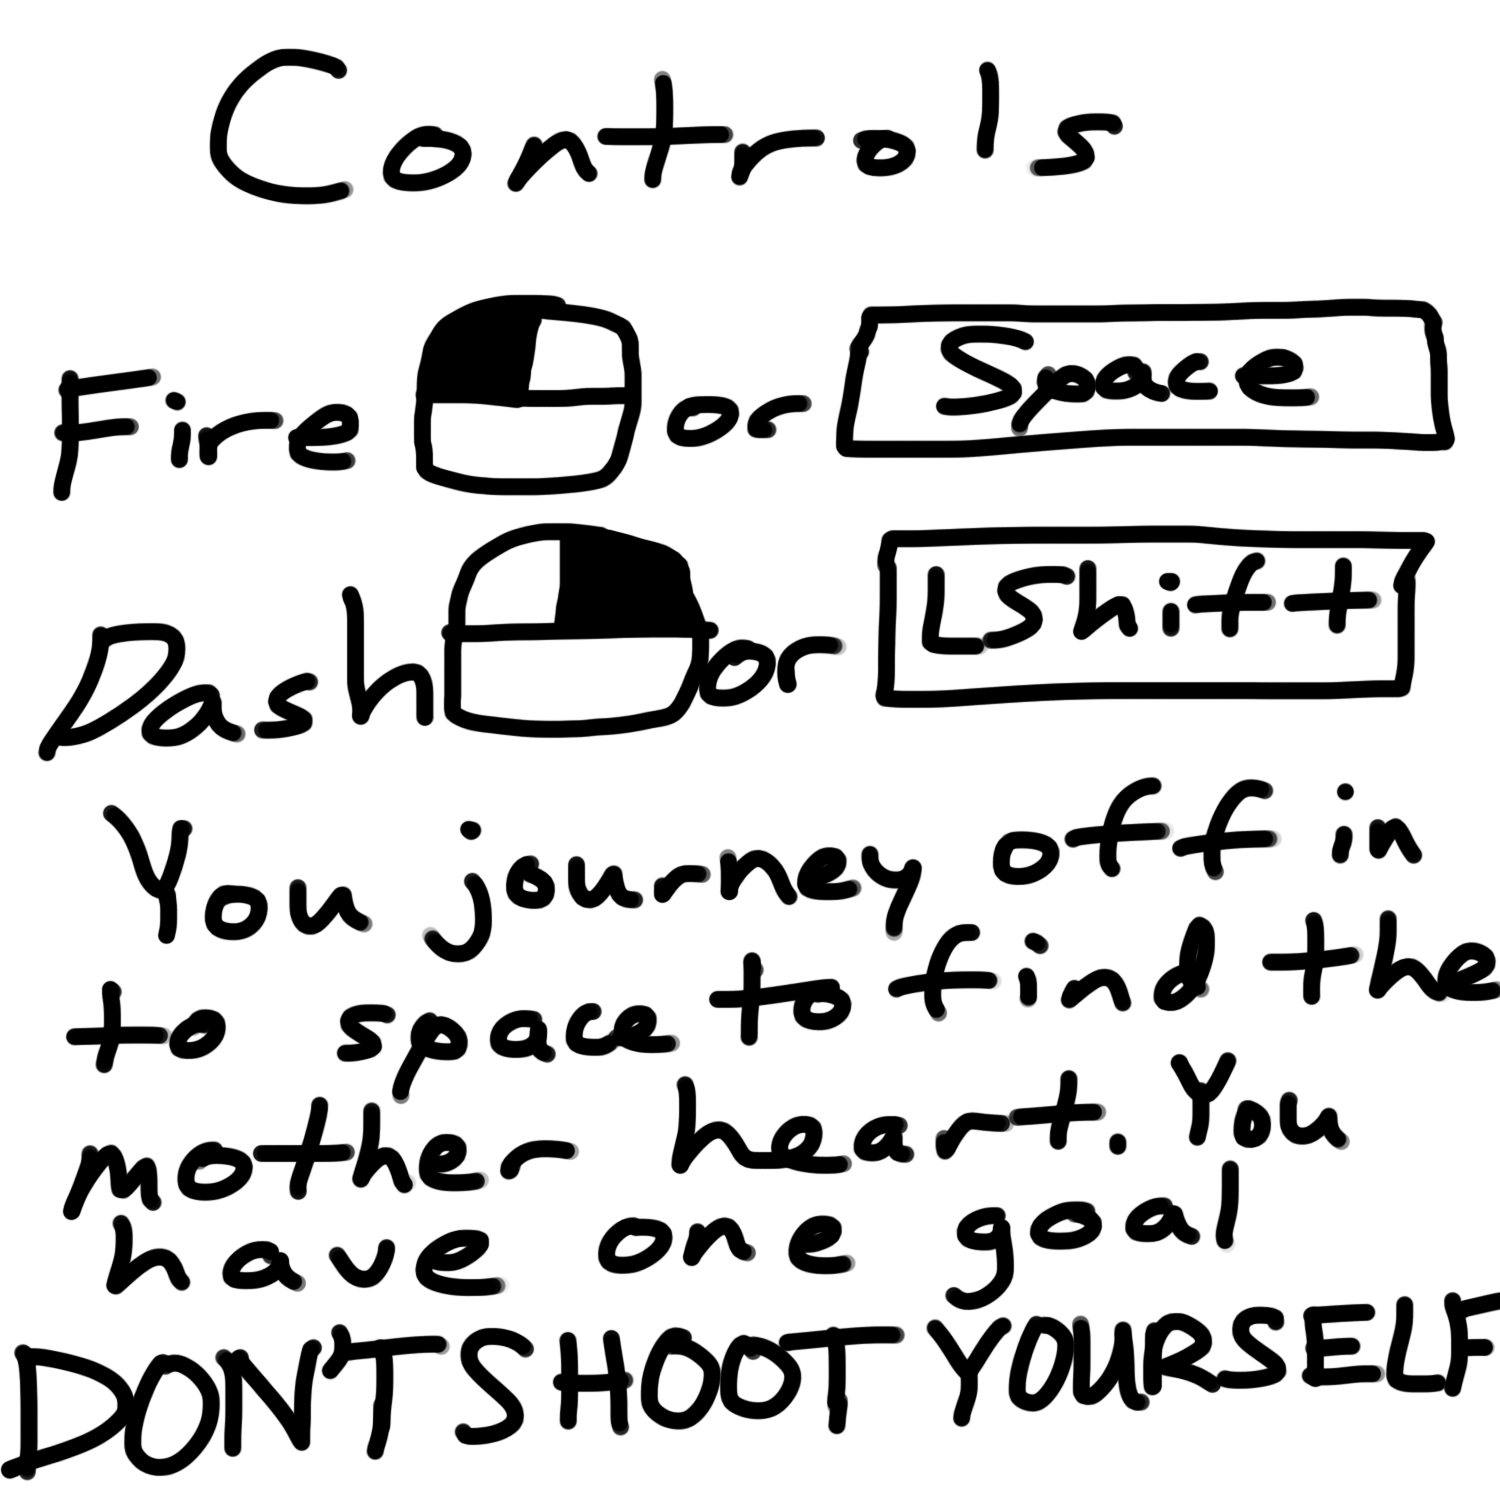 Controls
Fire or Space
Dash or LShift
You journey off in
to space to find the
mother heart. You
have one goal
DON'T SHOOT YOURSELF